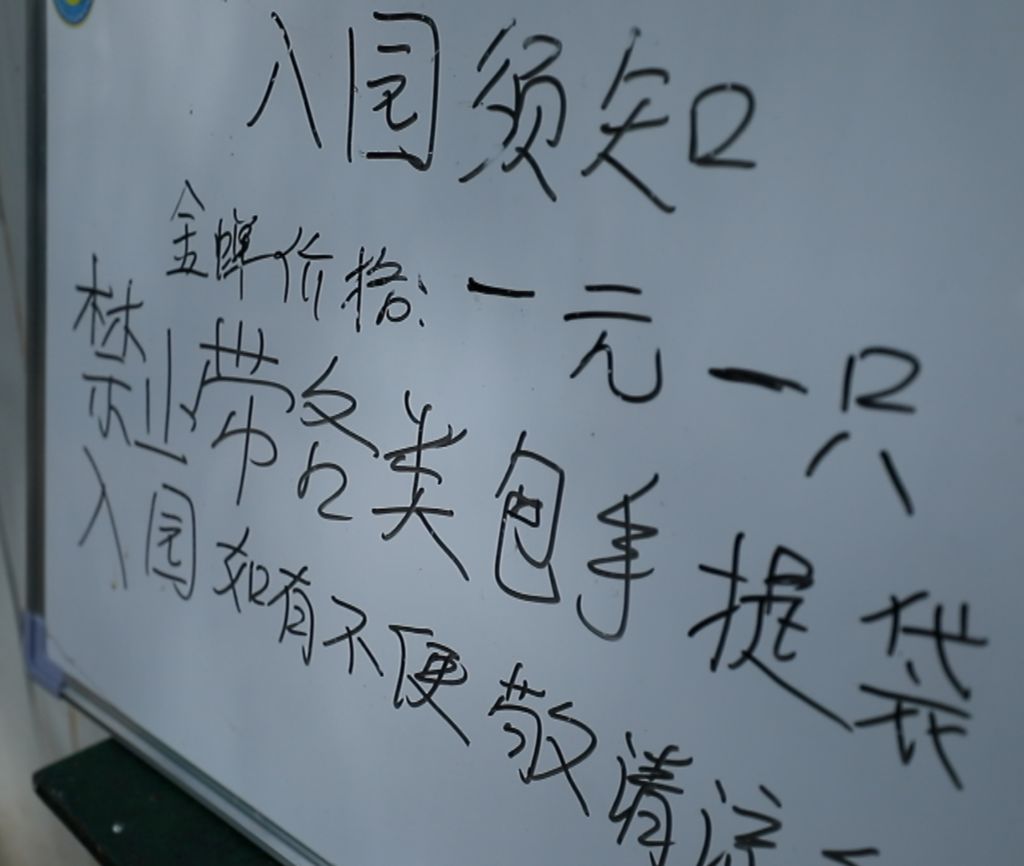 入园须知
金蝉价格:一元一只
禁止带各类包手提袋
入园如有不便敬请谅